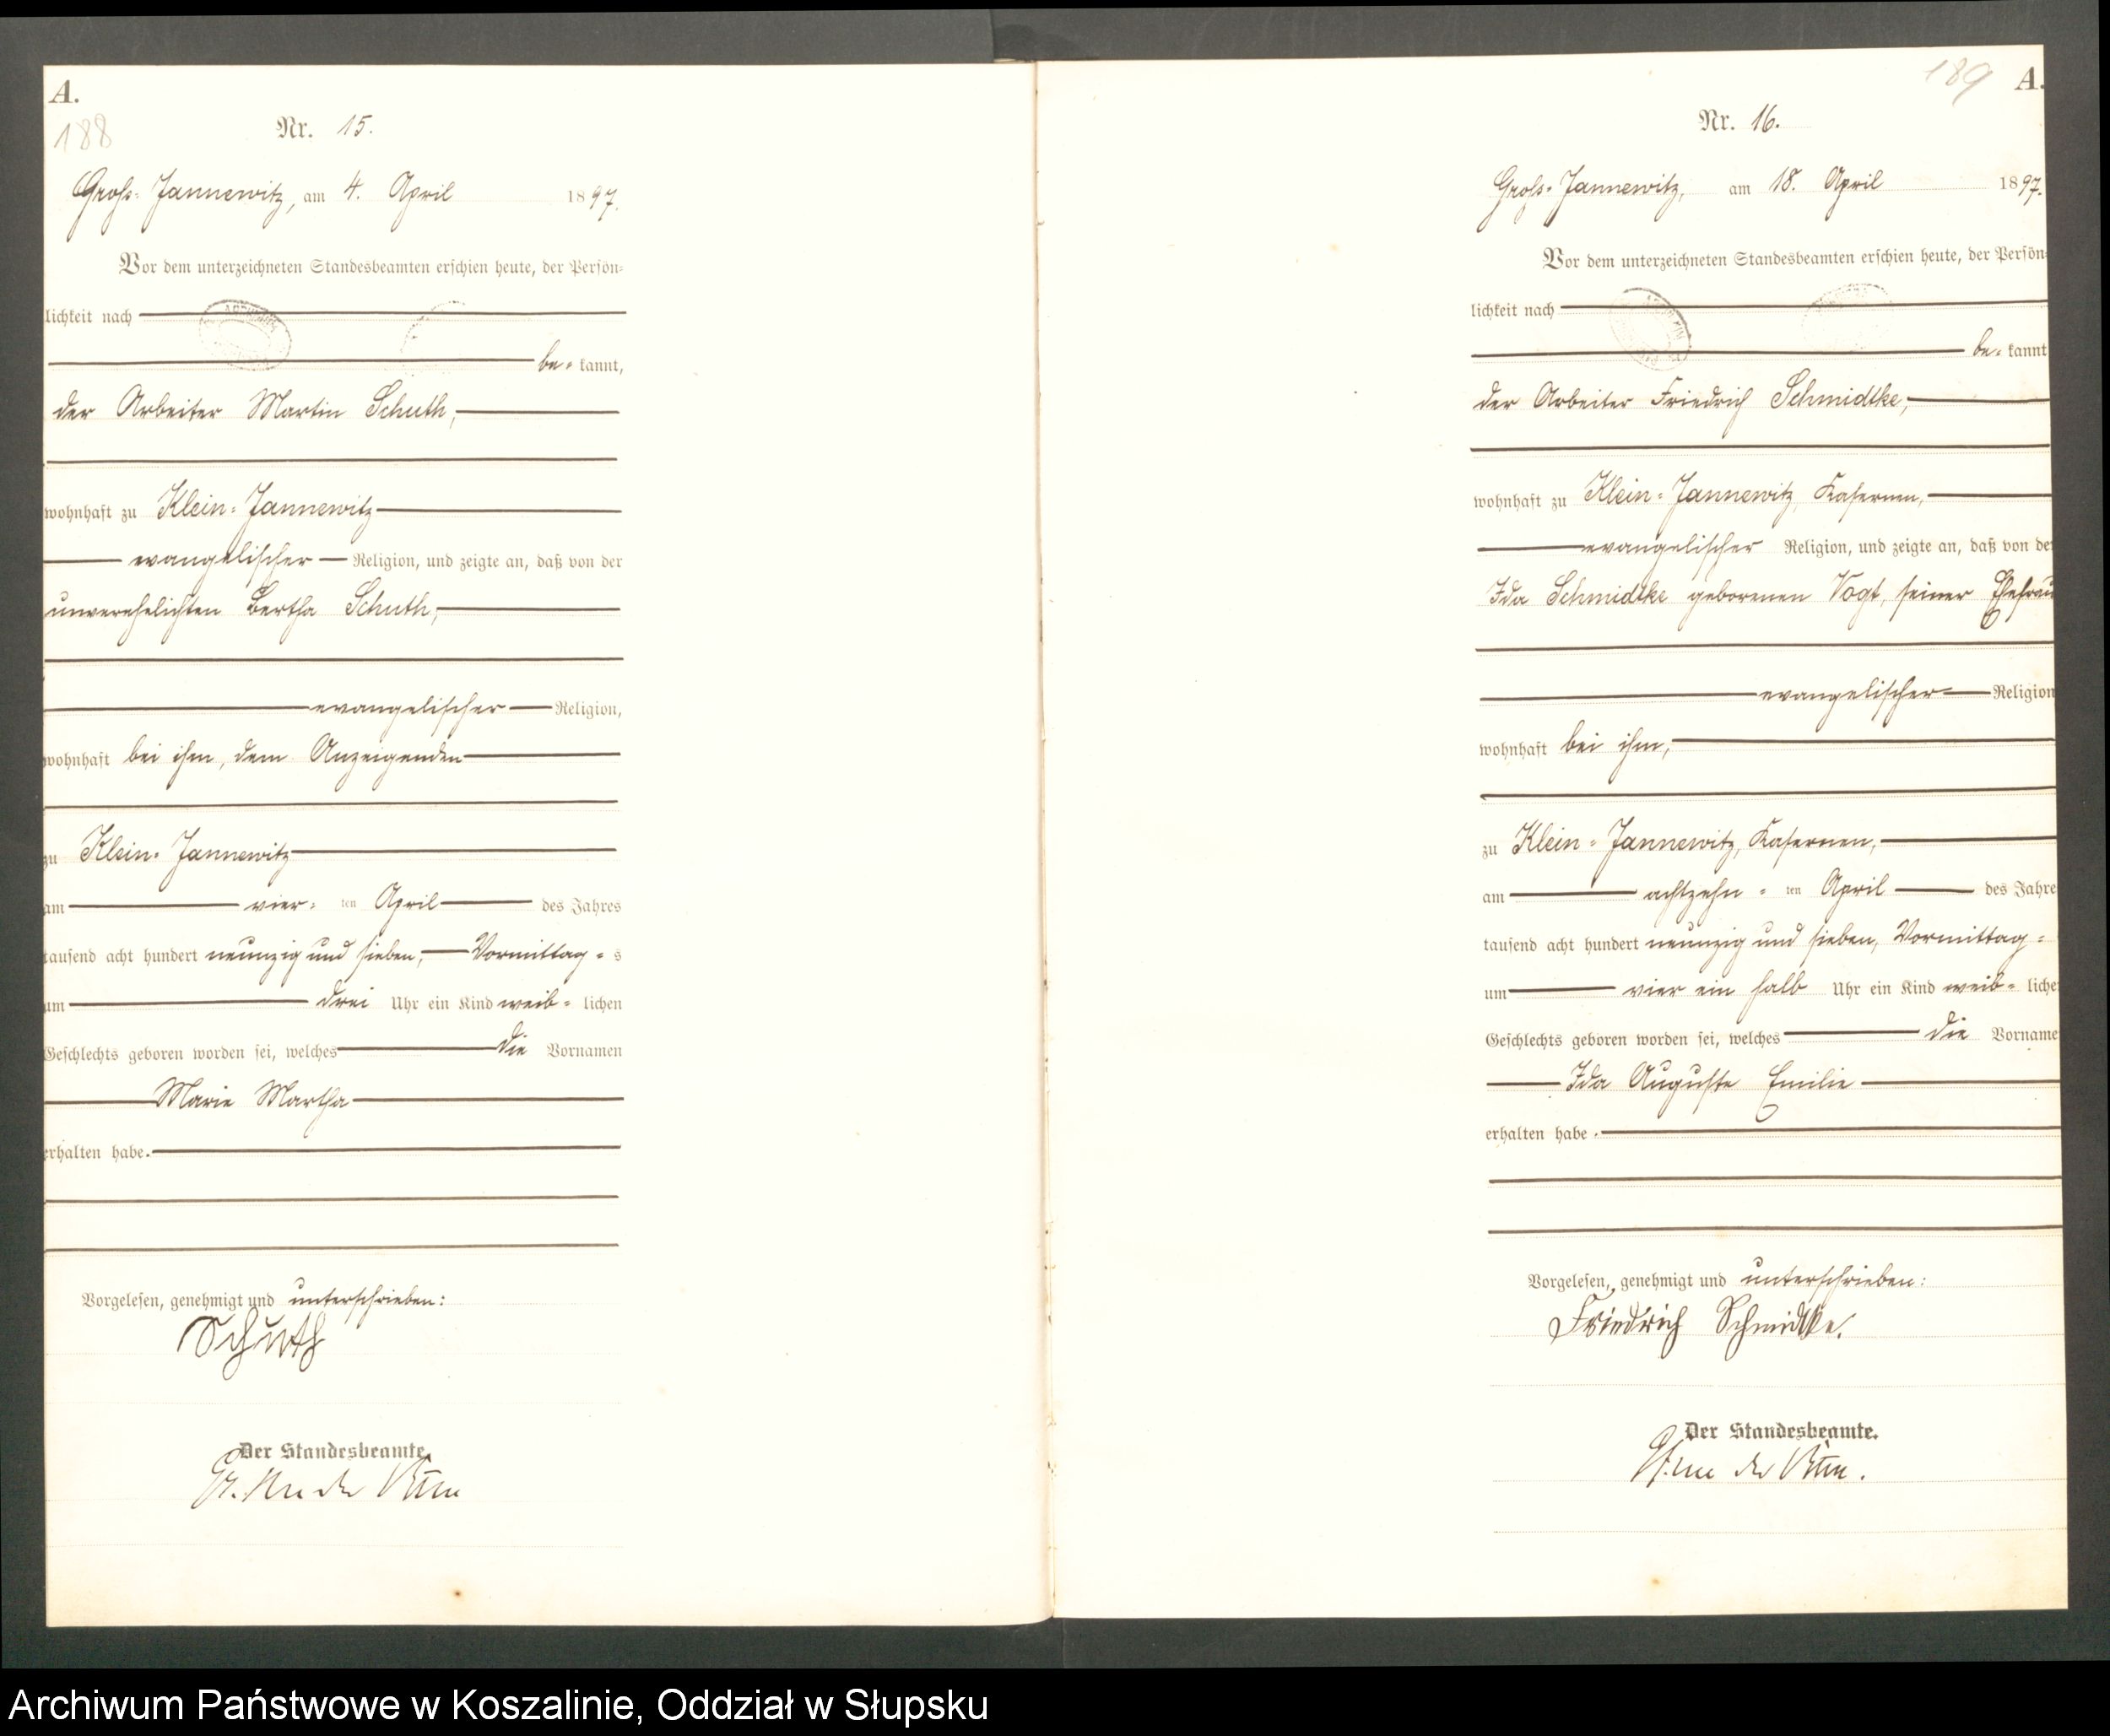 A.
188
Nr. 15.
Groß-Jannewitz, am 4. April 1897.
Vor dem unterzeichneten Standesbeamten erschien heute, der Persön-
lichkeit nach
be-kannt,
der Arbeiter Martin Schuth,
wohnhaft zu Klein-Jannewitz
evangelischer Religion, und zeigte an, daß von der
unverehelichten Bertha Schuth,
evangelischer Religion,
wohnhaft bei ihm, dem Anzeigenden
zu Klein-Jannewitz
am vier-ten April des Jahres
tausend acht hundert neunzig und sieben, Vormittag-s
um drei Uhr ein Kind weib-lichen
Geschlechts geboren worden sei, welches die Vornamen
Marie Martha
erhalten habe.
Vorgelesen, genehmigt und unterschrieben:
Schuth
Der Standesbeamte.
189
A.
Nr. 16.
Groß-Jannewitz, am 18. April 1897.
Vor dem unterzeichneten Standesbeamten erschien heute, der Persön-
lichkeit nach
be-kannt
der Arbeiter Friedrich Schmidtke,
wohnhaft zu Klein-Jannewitz, Kasernen,
evangelischer Religion, und zeigte an, daß von der
Ida Schmidtke geborenen Vogt, seiner Ehefrau
evangelischer Religion
wohnhaft bei ihm,
zu Klein-Jannewitz, Kasernen,
am achtzehn-ten April des Jahre
tausend acht hundert neunzig und sieben, Vormittag-
um vier ein halb Uhr ein Kind weib-liche
Geschlechts geboren worden sei, welches die Vorname
Ida Auguste Emilie
erhalten habe.
Vorgelesen, genehmigt und unterschrieben:
Friedrich Schmidtke.
Der Standesbeamte.
Archiwum Państwowe w Koszalinie, Oddział w Słupsku